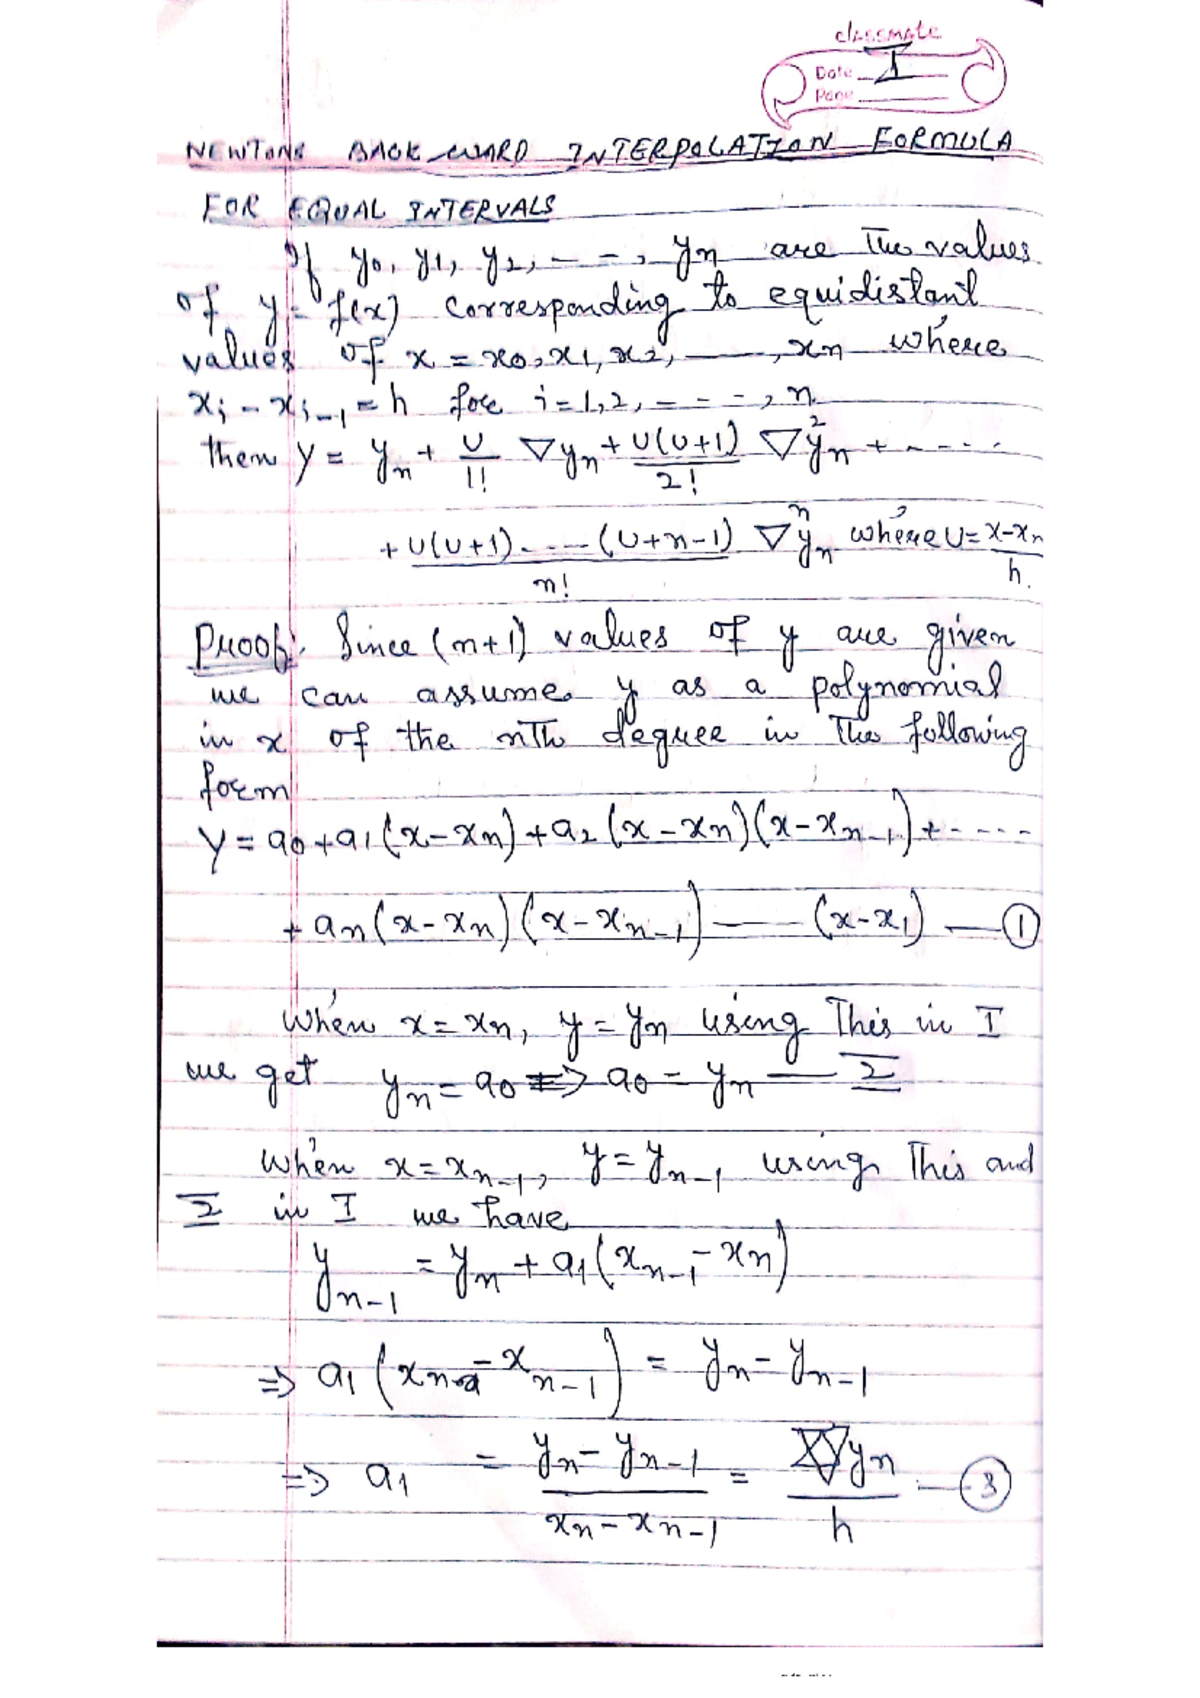 classmate
Date I
Page
NEWTONS BACK WARD INTERPOLATION FORMULA
FOR EQUAL INTERVALS
If y₀, y₁, y₂, - - , yₙ are the values
of y = f(x) corresponding to equidistant
values of x = x₀, x₁, x₂, ——, xₙ where
xᵢ - xᵢ₋₁ = h for i = 1, 2, - - - , n.
then y = yₙ + U/1! ∇yₙ + U(U+1)/2! ∇²yₙ + - - - - -
+ U(U+1) - - - - (U+n-1)/n! ∇ⁿyₙ where U = x-xₙ/h.
Proof:. Since (n+1) values of y are given
we can assume y as a polynomial
in x of the nth degree in the following
form
y = a₀ + a₁(x-xₙ) + a₂(x-xₙ)(x-xₙ₋₁) + - - - -
+ aₙ(x-xₙ)(x-xₙ₋₁) —— (x-x₁) — ①
When x = xₙ, y = yₙ using this in I
we get yₙ = a₀ ⇒ a₀ = yₙ — 2
When x = xₙ₋₁, y = yₙ₋₁ using this and
2 in I we have
yₙ₋₁ = yₙ + a₁(xₙ₋₁ - xₙ)
⇒ a₁(xₙ - xₙ₋₁) = yₙ - yₙ₋₁
⇒ a₁ = yₙ - yₙ₋₁/xₙ - xₙ₋₁ = ∇yₙ/h — ③